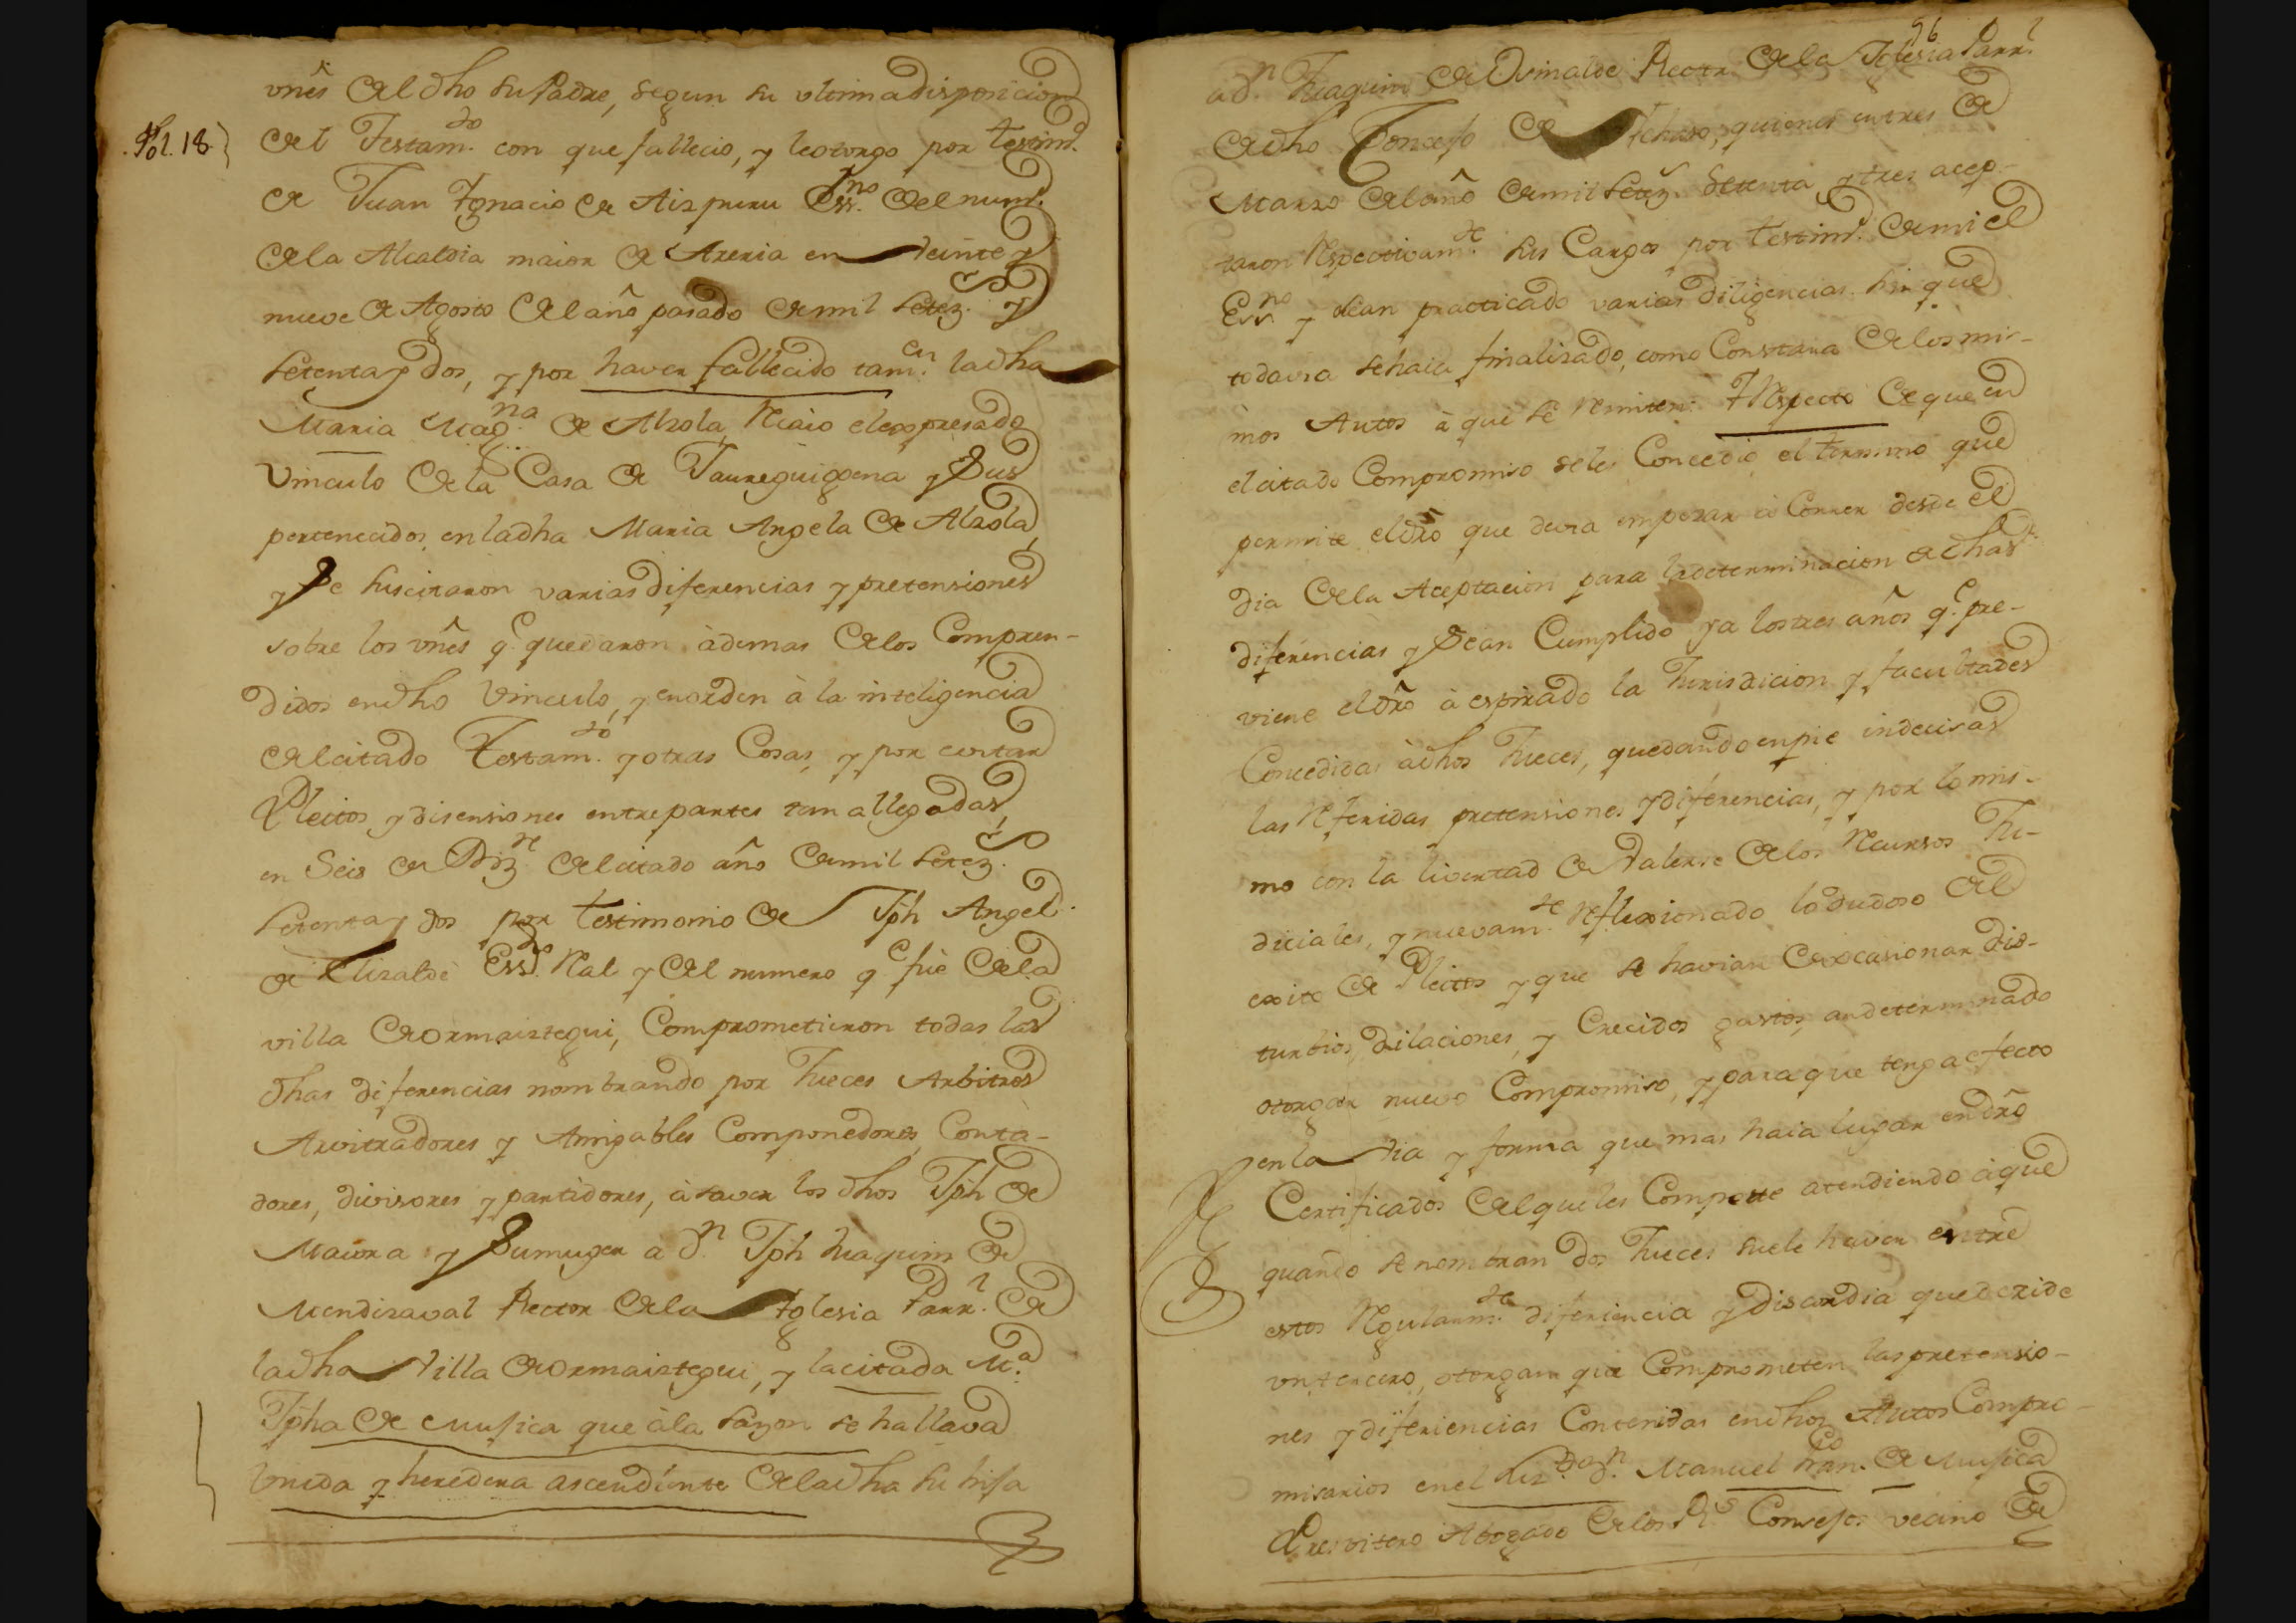 vnês del dho su Padre, segun su vltima disposicion
fol. 18
del Testam.to con que fallecio, y le otorgo por testim.o
de Juan Ignacio de Aizpuru Ess.no del num.o
de la Alcaldia maior de Areria en veinte y
nueve de Agosto del año pasado de mil setez.s y
setenta y dos, y por haver fallecido tam.en la dha
Maria Mag.na de Alzola, recaio el expresado
Vinculo de la Casa de Jaureguigoena y sus
pertenecidos, en la dha Maria Angela de Alzola,
y se suscitaron varias diferencias y pretensiones
sobre los vñes q.e quedaron àdemas de los Compren-
didos en dho Vinculo, y en orden à la inteligencia
del citado Testam.to y otras Cosas, y por evitar
Pleitos, y disensiones entre partes tan allegadas,
en Seis de Diz.re del citado año de mil setez.s
setenta y dos por testimonio de Jph Angel
de Elizalde Ess.no Real y del numero q.e fuè de la
villa de Ormaiztegui, Comprometieron todas las
dhas diferencias nombrando por Jueces Arbitros
Arvitradores y Amigables Componedores, Conta-
dores, divisores y partidores, à saver los dhos Jph de
Maiora y su muger a d.n Jph Juaquin de
Mendizaval Rector de la Iglesia Parr.l de
la dha villa de Ormaiztegui, y la citada M.a
Jpha de Mufica que à la sazon se hallava
Viuda y heredera ascendiente de la dha su hija
96
a d.n Juaquin de Rector de la Iglesia Parr.l
de dho Concejo de quienes en tres de
Marzo del año de mil setez.s setenta y tres acep-
taron respectivam.te sus Cargos por testim.o de mi el
Ess.no y se an practicado varias diligencias sin que
todavia se haia finalizado, como Constara de los mis-
mos Autos à que se remiten: Y respecto de que en
el citado Compromiso se les Concedio el termino que
permite el dro que devia empezar à Correr desde el
dia de la Aceptacion para la determinacion de dhas
diferencias y se an Cumplido ya los tres años q.e pre-
viene el dro à espirado la Jurisdicion y facultades
Concedidas à dhos Jueces, quedando en pie indecisas
las referidas pretensiones y diferencias, y por lo mis-
mo con la livertad de valerse de los recursos Ju-
diciales, y nuevam.te reflexionado lo dudoso del
exito de Pleitos y que se havian de ocasionar dis-
turbios, dilaciones, y Crecidos gastos, an determinado
otorgar nuevo Compromiso, y para que tenga efecto
en la via y forma que mas haia lugar en dro
Certificados del que les Compette atendiendo à que
quando se nombran dos Jueces suele haver entre
estos regularm.te diferiencia y discordia que decide
vn tercero, otorgan que Comprometen las pretensio-
nes y diferiencias Contenidas en dhos Autos Compro-
misarios en el Liz.do d.n Manuel Fran.co de Mufica
Presvitero Abogado de los R.s Consejos vecino de